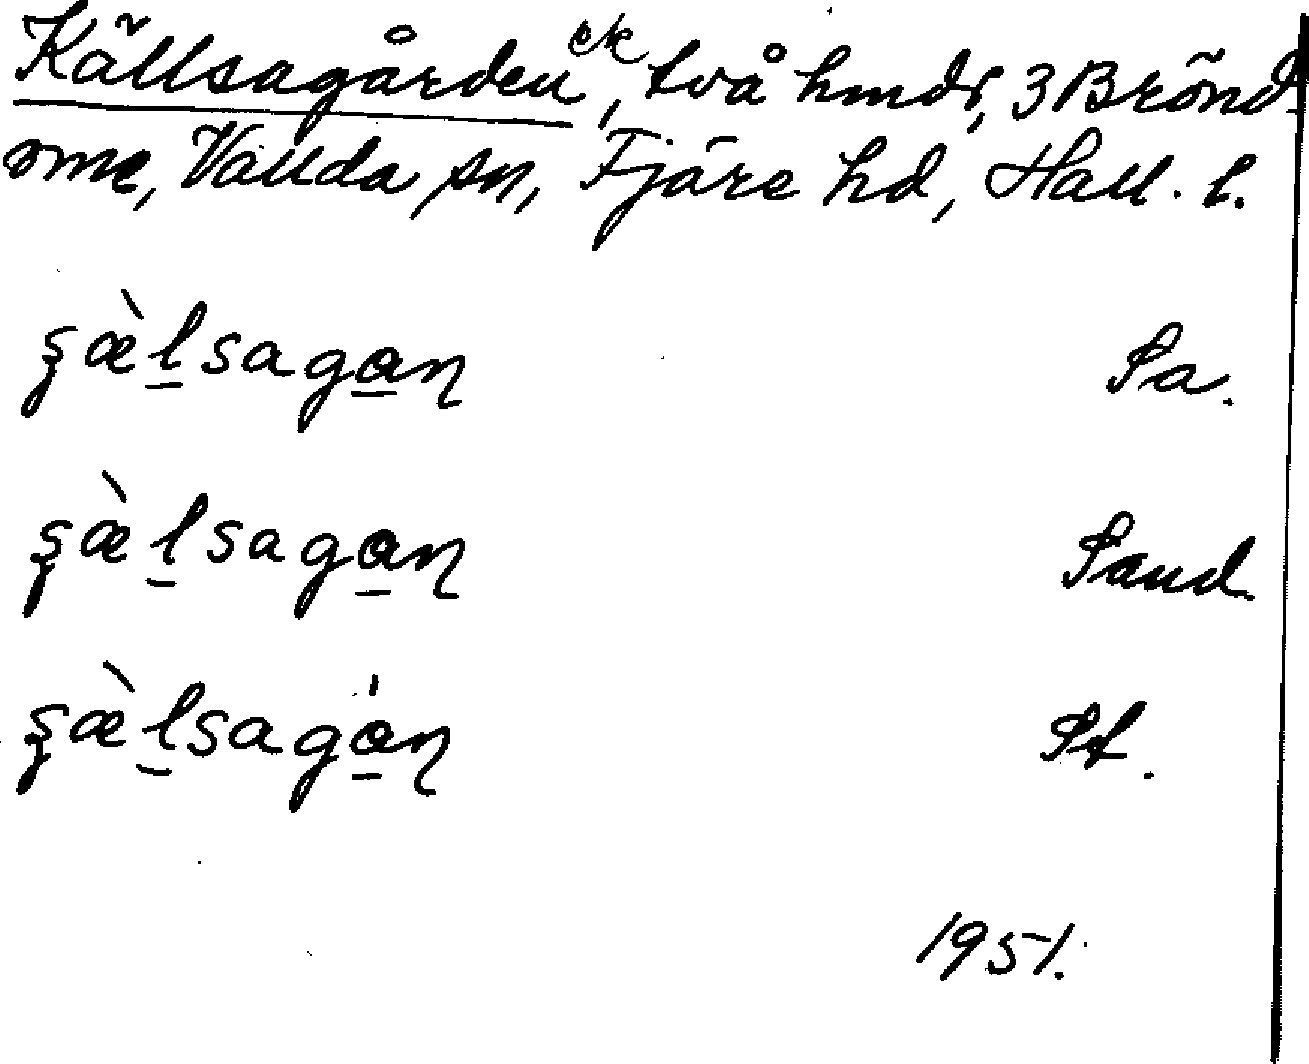 Källsagården ek, två hmdr, 3 Brönd
ome, Vallda sn, Fjäre hd, Hall. l.
ʂæ̀l̲saga̲ɳ Sa.
ʂæ̀l̲saga̲ɳ Sand
ʂæ̀l̲saga̲̍ɳ St.
1951.